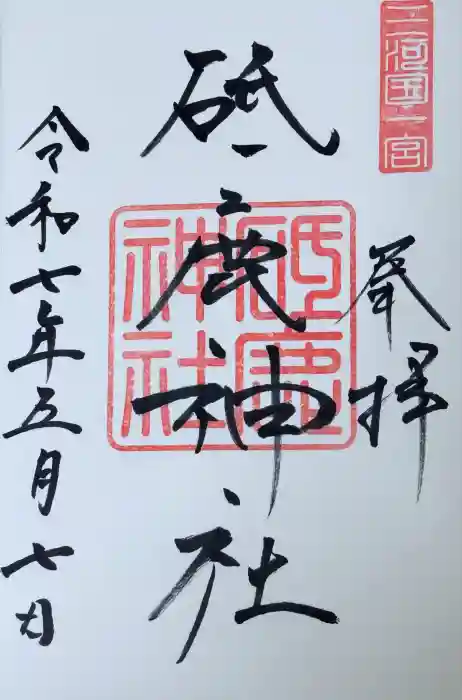 三河国一宮
奉拝
砥鹿神社
砥鹿神社
令和七年五月七日